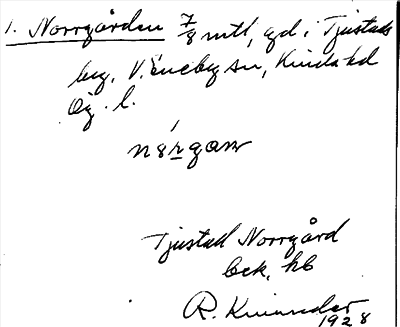 1. Norrgården 7/8 mtl, gd i Tjustads
by, V. Eneby sn, Kinda hd
Ög. l.
Tjustad Norrgård
bek, hb
R. Kinander
1928